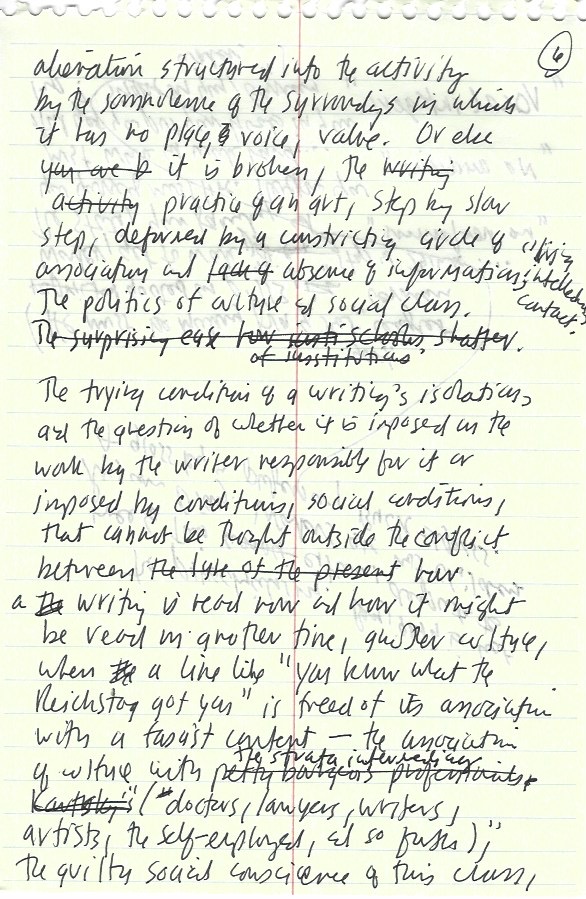 6
alienation structured into the activity
by the somnolence of the surroundings in which
it has no place, voice, value. Or else
you are b it is broken, the writing
activity practice of an art, step by slow
step, deformed by a constricting circle of
association and lack of absence of information, intellectual
contact.
The politics of culture and social class.
The surprising ease how scholars shatter.
of institutions
The trying condition of a writing's isolation,
and the question of whether it is imposed on the
work by the writer responsible for it or
imposed by conditions, social conditions,
that cannot be thought outside the conflict
between the lure of the present how
a the writing is read now and how it might
be read in another time, another culture,
when the a line like "you know what the
Reichstag got you" is freed of its association
with a fascist content — the association
the strata intervening
of culture with petty bourgeois professionals.
Kautsky's ("doctors, lawyers, writers,
artists, the self-employed, and so further),"
the guilty social conscience of this class,